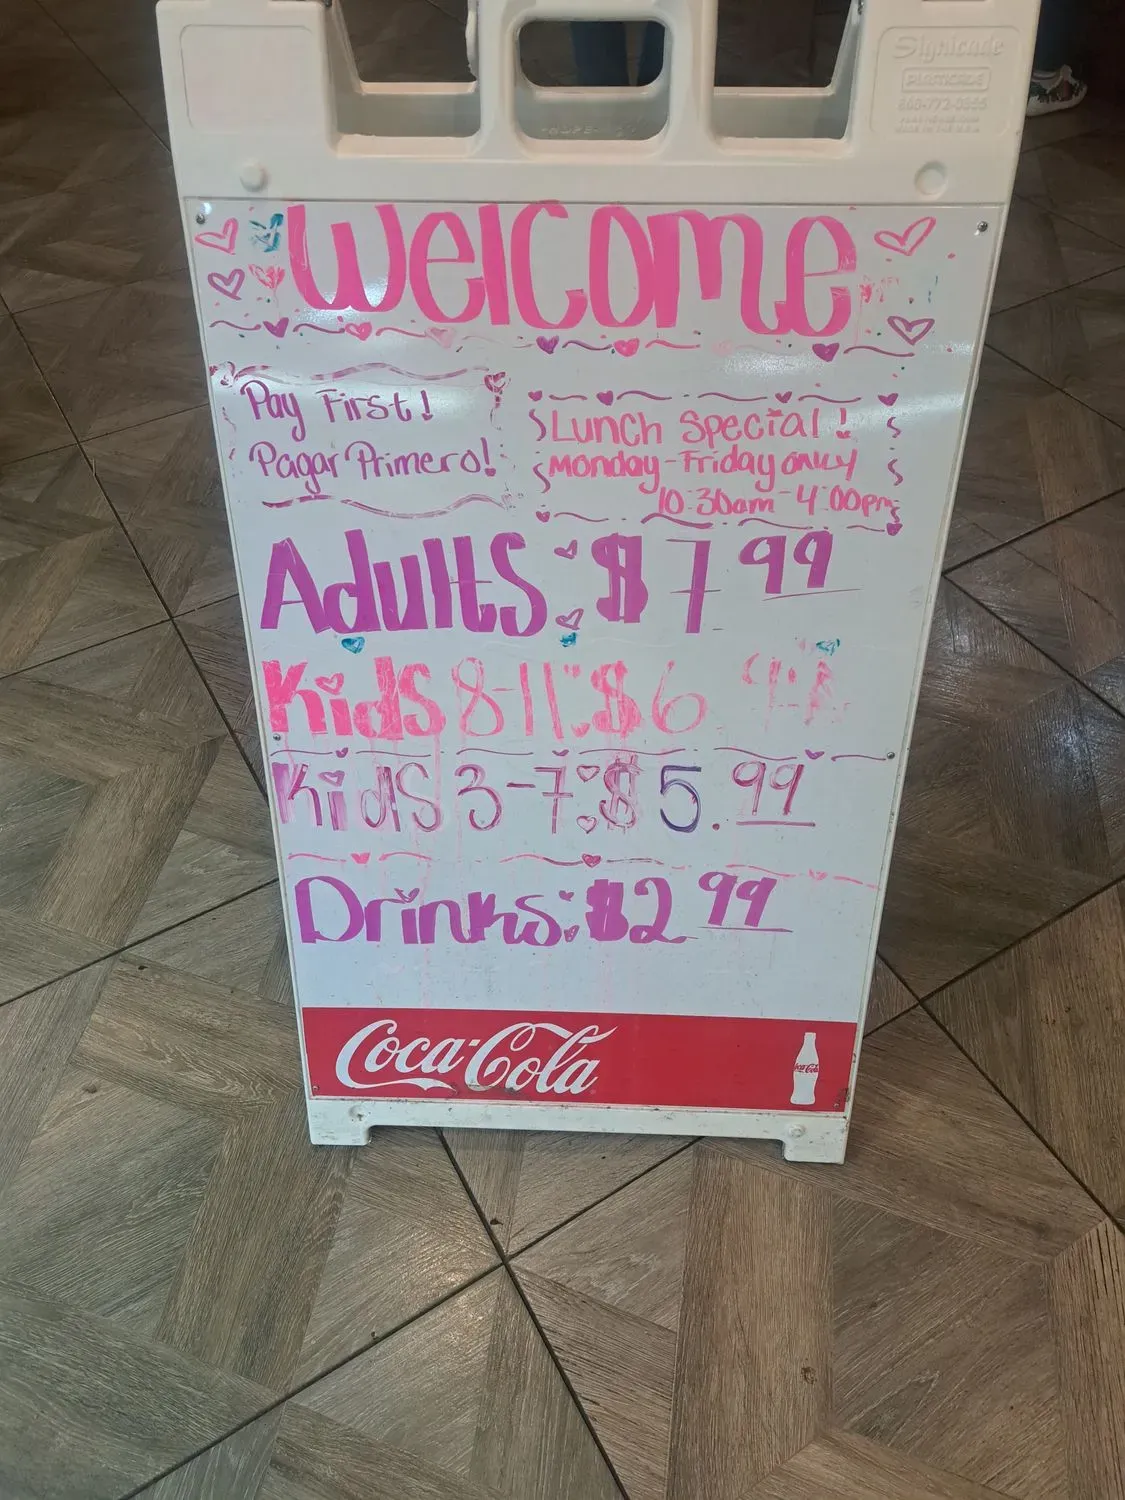 Signicade
PLASTICADE
MADE IN THE U.S.A.
Welcome
Pay First!
Pagar Primero!
Lunch Special!
Monday-Friday only
10:30am - 4:00pm
Adults: $7 99
Kids 8-11: $6
Kids 3-7: $5.99
Drinks: $2 99
Coca-Cola
Coca-Cola